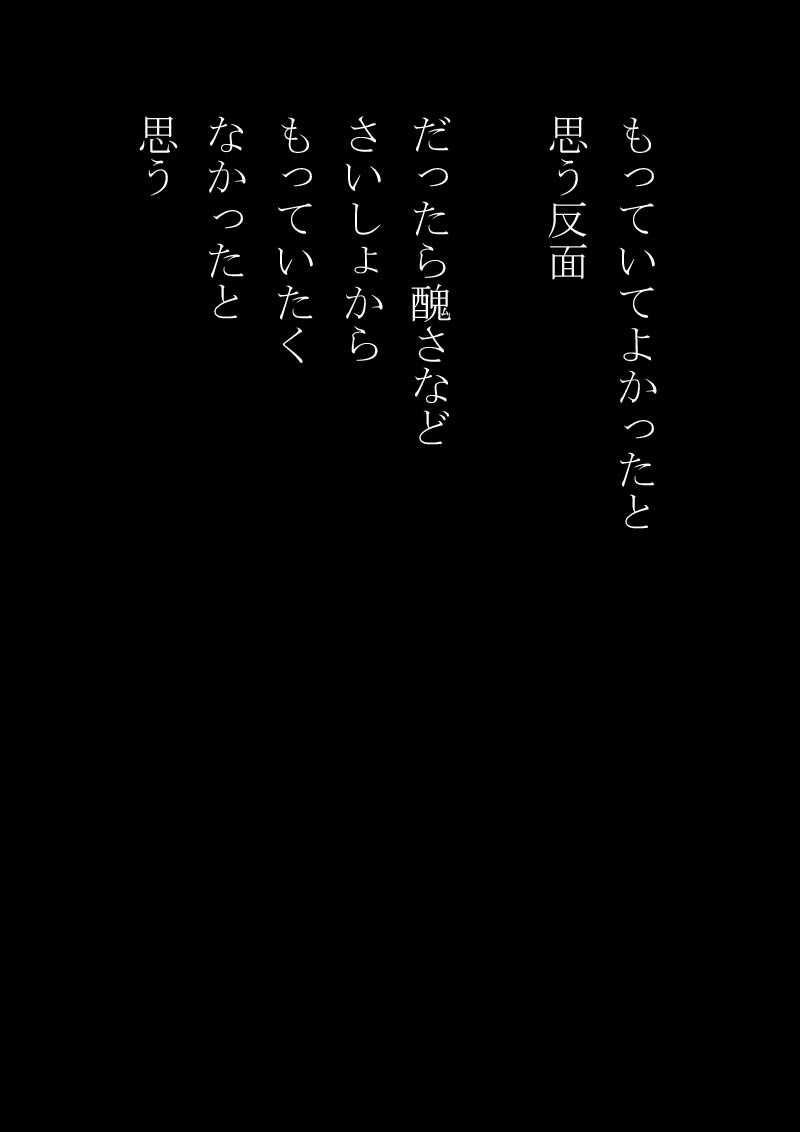 もっていてよかったと
思う反面
だったら醜さなど
さいしょから
もっていたく
なかったと
思う